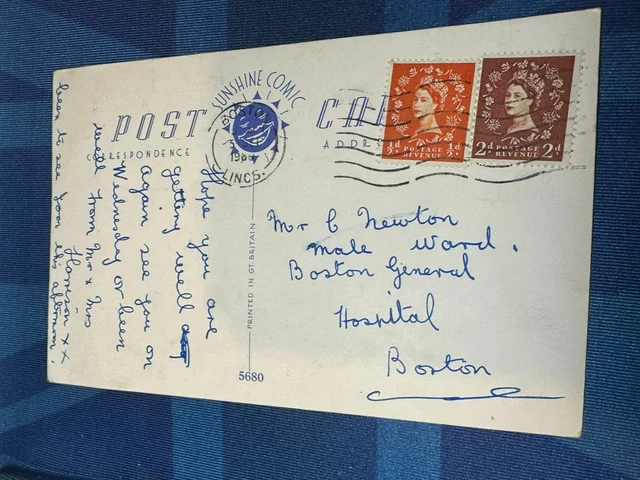 SUNSHINE COMIC
POST CARD
CORRESPONDENCE
ADDRESS
BOSTON
LINCS.
½d POSTAGE REVENUE ½d
2d POSTAGE REVENUE 2d
Hope you are
getting well
again see you on
Wednesday
well from Mr & Mrs
Harrison x x
been to see you this afternoon.
PRINTED IN GT. BRITAIN
5680
Mr C Newton
male ward.
Boston General
Hospital
Boston